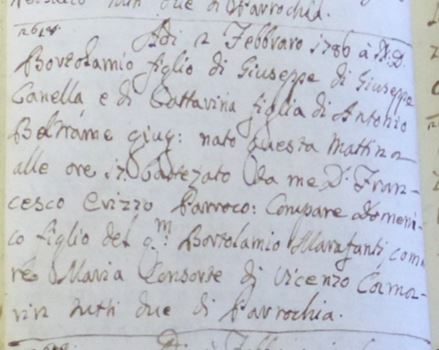 Adi 2 Febbraro 1786 à N.D.
Bortolamio figlio di Giuseppe di Giuseppe
Canella e di Cattarina figlia di Antonio
Beltrame giug: nato questa mattina
alle ore 17 battezato da me D. Fran-
cesco Erizzo Parroco: Compare Domeni-
co figlio del q.m Bortolamio Marafanti com
re Maria Consorte di Vicenzo Cormo-
rin tutti due di Parrochia.